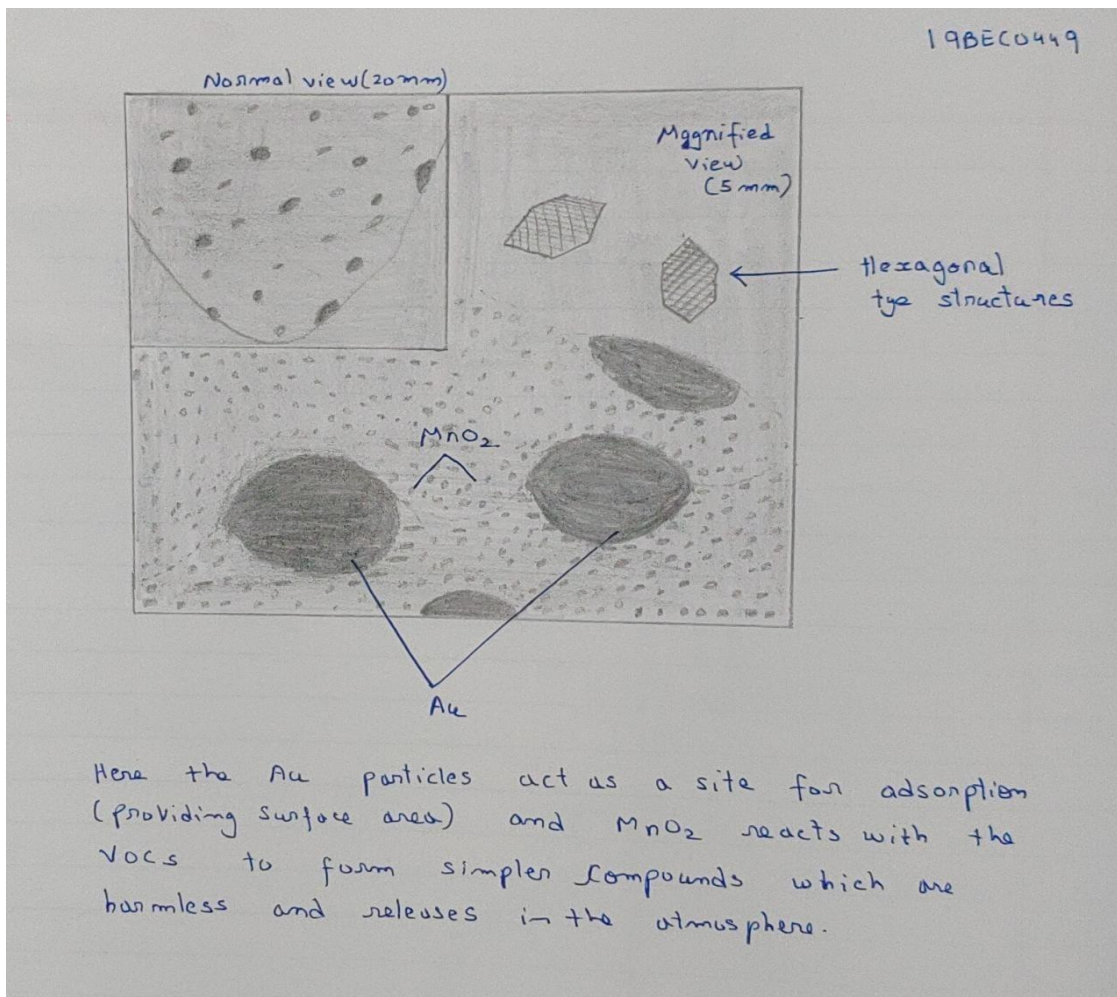 19BEC0449
Normal view(20mm)
Mggnified
view
(5mm)
Hexagonal
tye structures
MnO2
Au
Here the Au particles act as a site for adsorption
(providing surface area) and MnO2 reacts with the
VOCs to form simpler compounds which are
harmless and releases in the atmosphere.